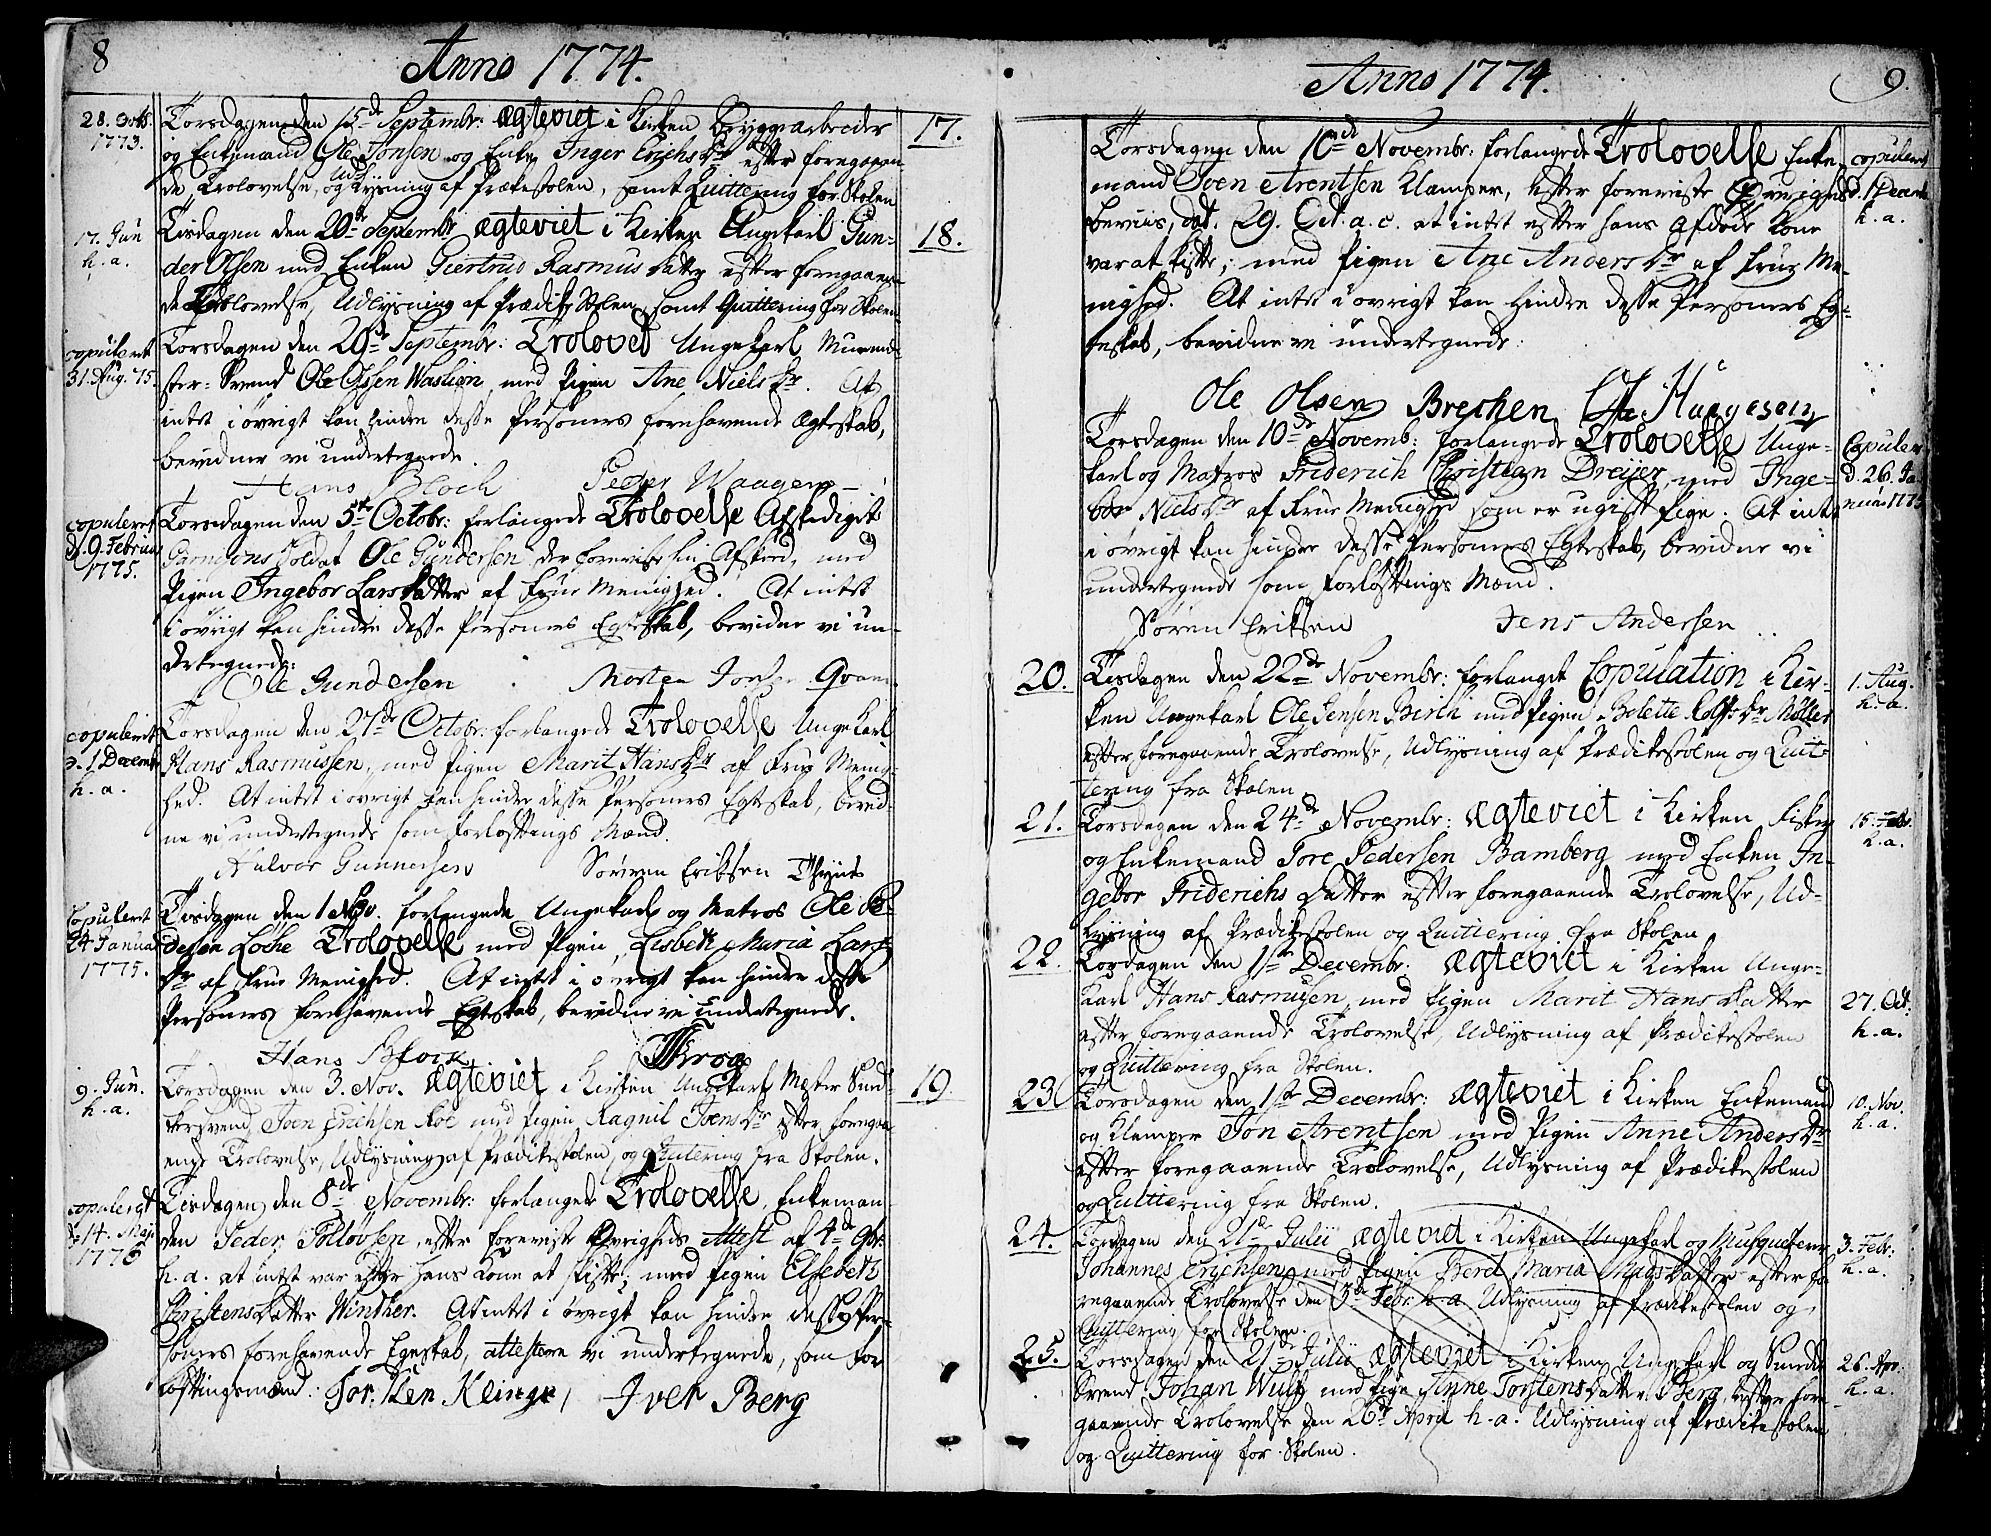 8
Anno 1774.
28. Octb.
1773.
Torsdagen den 15de Septembr: ægteviet i Kirken Bryggearbeider
og Enkemand Ole Jonsen og Enke Inger Erichs Dr efter foregaaen-
de Trolovelse, og Udlysning af Prækestolen, samt Quittering for Skolen
17.
17. Jun
h. a.
Tisdagen den 20de Septembr ægteviet i Kirken Ungekarl Gun-
der Olsen med Enken Giertrud Rasmus Datter efter foregaaen-
de Trolovelse, Udlysning af Prædike Stolen, samt Quittering for Skolen
18.
copuleret
31. Aug. 75.
Torsdagen den 29de Septembr: Trolovet Ungekarl Murme-
ster-Svend Ole Olsen Waslion, med Pigen Ane Niels Dr. At
intet i øvrigt kan hindre disse Personers forehavende Ægteskab,
bevidner vi undertegnede.
Hans Bloch Peder Waagen
copuleret
d. 9. Februar
1775.
Torsdagen den 5te Octobr: forlangede Trolovelse Afskediget
Garnisons Soldat Ole Gundersen der foreviste sin Afskeed, med
Pigen Ingebor Lars Datter af Frue Menighed. At intet
i øvrigt kan hindre disse Personers Egteskab, bevidner vi un-
dertegnede:
Ole Gundersen Morten Jonsen Qvam
copuleret
d. 1 Decembr
h. a.
Torsdagen den 27de Octobr: forlangede Trolovelse Ungekarl
Hans Rasmussen, med Pigen Marit Hans Dr af Frue Menig-
hed. At intet i øvrigt kan hindre disse Personers Egteskab, bevid-
ne vi undertegnede som Forløftnings Mænd.
Halvor Gunnersen Sørren Eriksen
Copuleret
24 Januar
1775.
Tisdagen den 1 Nov. forlangede Ungekarl og Matros Ole Pe-
dersen Løche Trolovelse med Pigen, Lisbeth Maria Lars
Dr af Frue Menighed. At intet i øvrigt kan hindre disse
Personers forehavende Egteskab, bevidne vi undertegnede.
Hans Block Krog
9. Jun.
h. a.
Torsdagen den 3. Nov. ægteviet i Kirken Ungekarl Mester Snid-
kersvend Iven Erichsen Roe med Pigen Ragnil Ivens Dr efter foregaa-
ende Trolovelse, Udlysning af Prædikestolen, og Quitering fra Skolen.
19.
copuleret
d. 14. Maji
1775
Tisdagen den 8de Novembr: forlangede Trolovelse, Enkeman-
den Peder Tollovsen, efter foreviste Øvrigheds Attest af 4de 9br.
h. a. at intet var efter hans Kone at skifte; med Pigen Elsebeth
Christens Datter Winther. At intet i øvrigt kan hindre disse Per-
soners forehavende Egteskab, attestere vi undertegnede, som for-
løftningsmænd: Tor: Ken Klinge, Iver Berg
Anno 1774.
9.
Torsdagen den 10de Novembr: forlangede Trolovelse Enke-
mand Iven Arentsen Klamper, efter foreviste Øvrigheds
beviis, dat. 29. Oct. a. c. at intet efter hans afdøde Kone
var at skifte; med Pigen Ane Anders Dr af Frue Me-
nighed. At intet i øvrigt kan hindre disse Personers Eg-
teskab, bevidne vi undertegnede:
Ole Olsen Brechen Ole Haagesen
copuleret
d. 1 Decem
h. a.
Torsdagen den 10de Novemb: forlangede Trolovelse Unge-
karl og Matros Friderich Christian Dreijer, med Inge-
bor Niels Dr af Frue Menighed som er ugift Pige. At intet
i øvrigt kan hindre disse Personers Egteskab, bevidne vi
undertegnede som forløftnings Mænd.
Søren Eriksen Jens Andersen
Copuler
d. 26. Ja-
nuar 1775
20.
Tisdagen den 22de Novembr: forlanget Copulation i Kir-
ken Ungekarl Ole Jensen Berli med Pigen Bolette Rolfs Dr Møller
efter foregaaende Trolovelse, Udlysning af Prædikestolen og Quit-
tering fra Skolen
1. Aug.
h. a.
21.
Torsdagen den 24de Novembr: ægteviet i Kirken Fisker
og Enkemand Tore Pedersen Bamberg med Enken In-
gebor Friderichs Datter efter foregaaende Trolovelse, Ud-
lysning af Prædikestolen og Quittering fra Skolen
15. Febr.
h. a.
22.
Torsdagen den 1ste Decembr. ægteviet i Kirken Unge-
karl Hans Rasmusen, med Pigen Marit Hans Datter
efter foregaaende Trolovelse, Udlysning af Prædikestolen
og Quittering fra Skolen.
27. Oct.
h. a.
23.
Torsdagen den 1ste Decembr: ægteviet i Kirken Enkemand
og Klamper Jon Arentsen med Pigen Anne Anders Dr
efter foregaaende Trolovelse, Udlysning af Prædikestolen
og Quittering fra Skolen.
10. Nov.
h. a.
24.
Torsdagen den 21de Julii ægteviet i Kirken Ungekarl og Musqueteer
Johannes Erichsen med Pigen Berit Maria Mads Datter efter fo-
regaaende Trolovelse den 3de Febr. h. a. Udlysning af Prædikestolen og
Quittering for Skolen.
3. Febr.
h. a.
25.
Torsdagen den 21de Julii ægteviet i Kirken Ungekarl og Smede
Svend Johan Wulf med Pige Anne Torstens Datter Berg, efter fore-
gaaende Trolovelse den 26de April h. a. Udlysning af Prædikestolen
og Quittering for Skolen.
26. Apr.
h. a.